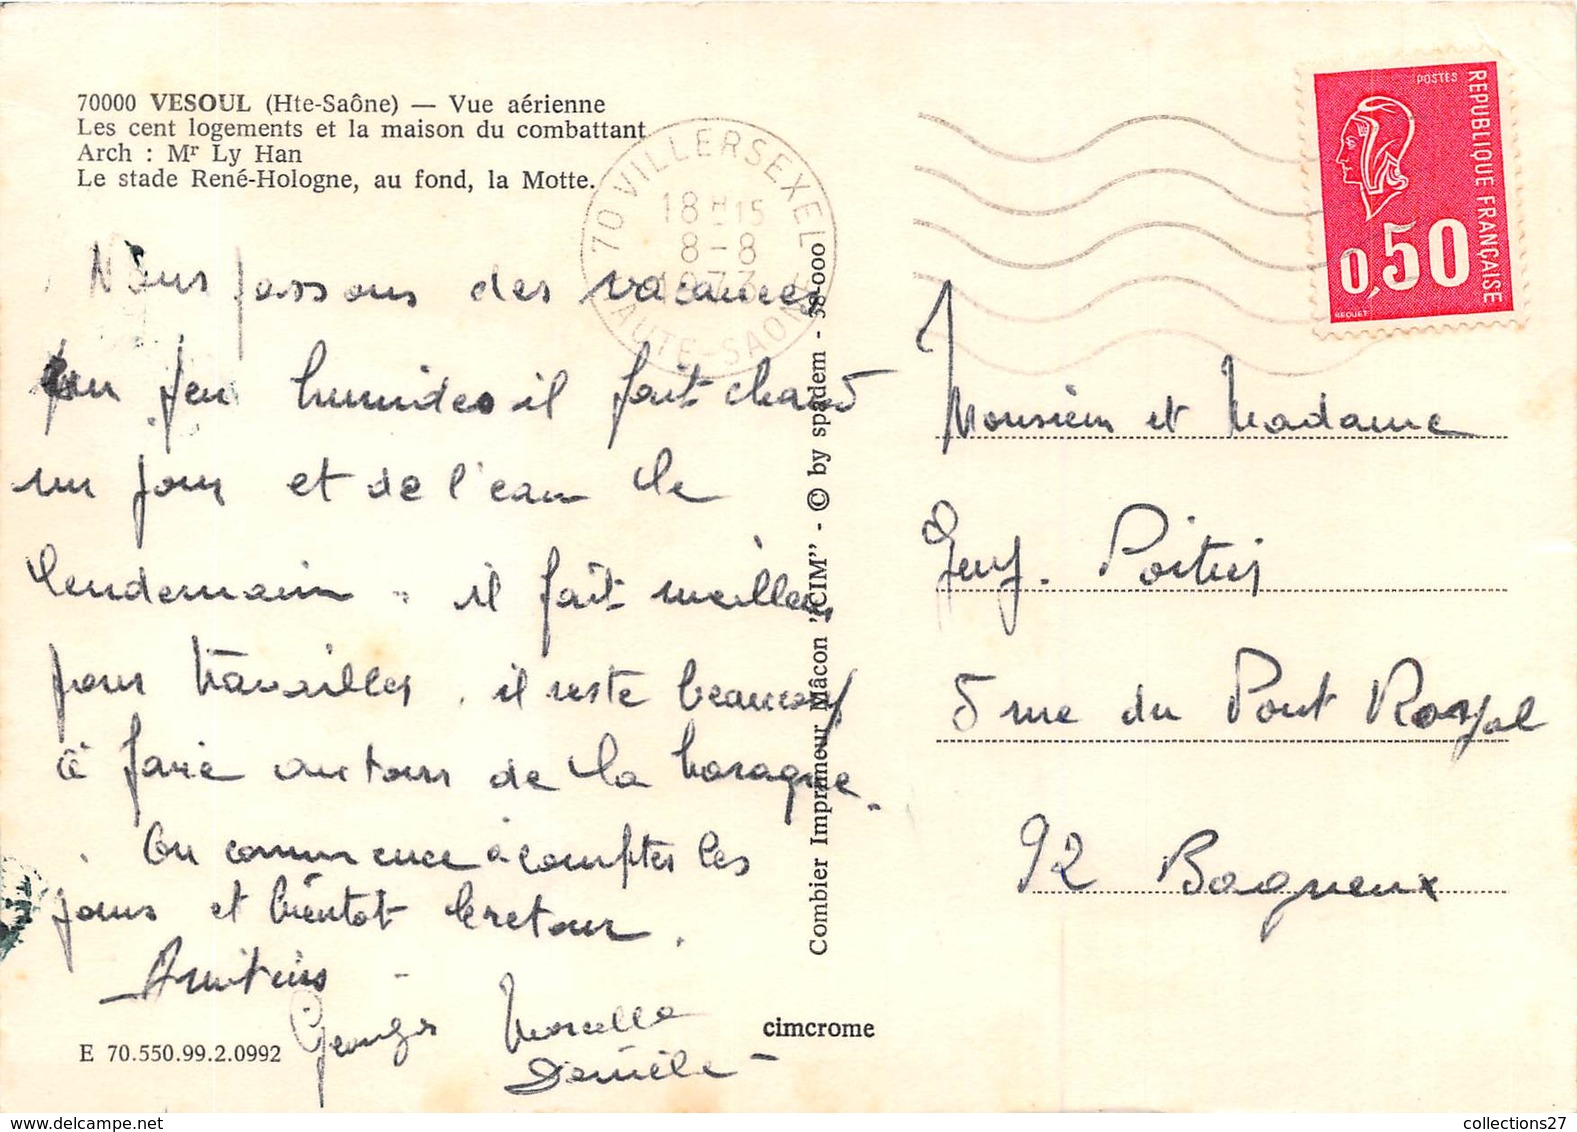 70000 VESOUL (Hte-Saône) — Vue aérienne
Les cent logements et la maison du combattant
Arch : Mr Ly Han
Le stade René-Hologne, au fond, la Motte.
70 VILLERSEXEL
18H15
8-8
1973
HAUTE-SAONE
POSTES
REPUBLIQUE FRANÇAISE
0,50
BEQUET
Nous passons des vacances
un peu humides il fait chaud
un jour et de l'eau le
lendemain. il fait meilleur
pour travailler. il reste beaucoup
à faire autour de la baraque.
On commence à compter les
jours et bientôt le retour.
Amitiés
Georges Marcelle
Danièle
Combier Imprimeur Mâcon "CIM" - © by spadem - 38-000
Monsieur et Madame
Guy. Poitier
5 rue du Pont Royal
92 Bagneux
cimcrome
E 70.550.99.2.0992
collections27